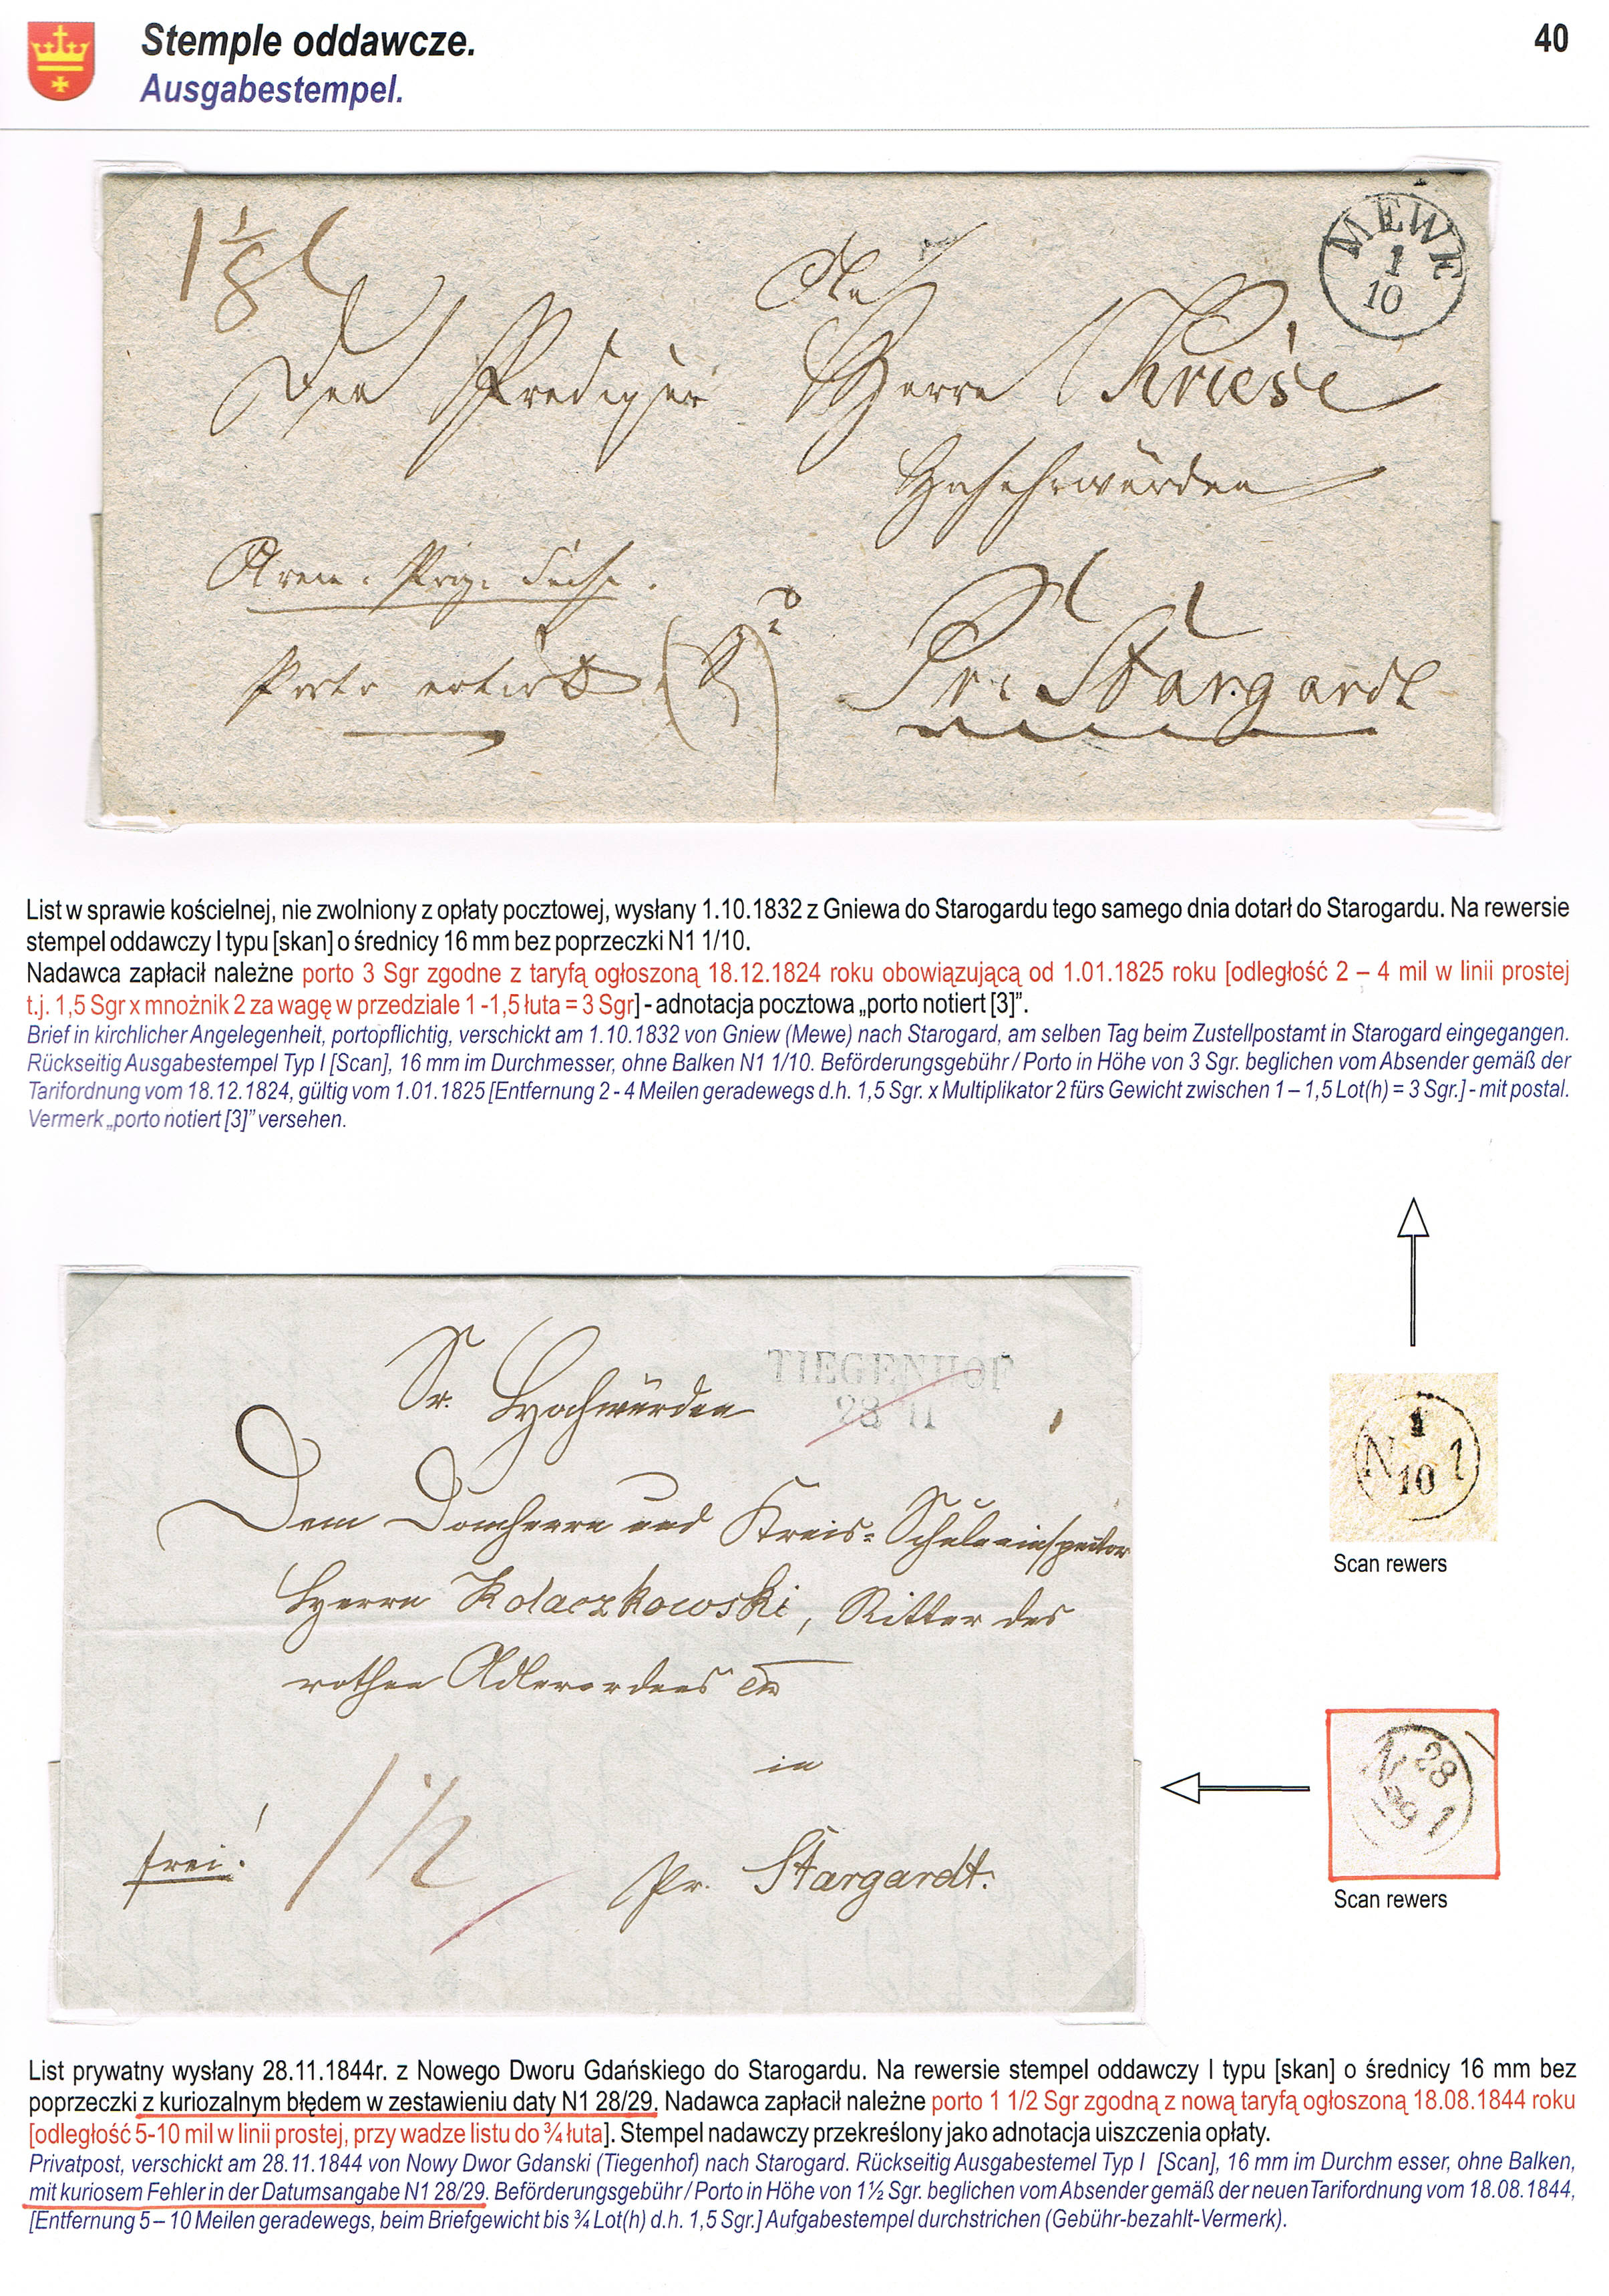 Stemple oddawcze.
40
Ausgabestempel.
1 1/8 L
MEWE
1
10
An
Den Prediger Herrn Kriese
Hochehrwürden
Porto notirt (3)
Pr. Stargardt
List w sprawie kościelnej, nie zwolniony z opłaty pocztowej, wysłany 1.10.1832 z Gniewa do Starogardu tego samego dnia dotarł do Starogardu. Na rewersie
stempel oddawczy I typu [skan] o średnicy 16 mm bez poprzeczki N1 1/10.
Nadawca zapłacił należne porto 3 Sgr zgodne z taryfą ogłoszoną 18.12.1824 roku obowiązującą od 1.01.1825 roku [odległość 2 – 4 mil w linii prostej
t.j. 1,5 Sgr x mnożnik 2 za wagę w przedziale 1 -1,5 łuta = 3 Sgr] - adnotacja pocztowa „porto notiert [3]”.
Brief in kirchlicher Angelegenheit, portopflichtig, verschickt am 1.10.1832 von Gniew (Mewe) nach Starogard, am selben Tag beim Zustellpostamt in Starogard eingegangen.
Rückseitig Ausgabestempel Typ I [Scan], 16 mm im Durchmesser, ohne Balken N1 1/10. Beförderungsgebühr / Porto in Höhe von 3 Sgr. beglichen vom Absender gemäß der
Tarifordnung vom 18.12.1824, gültig vom 1.01.1825 [Entfernung 2 - 4 Meilen geradewegs d.h. 1,5 Sgr. x Multiplikator 2 fürs Gewicht zwischen 1 – 1,5 Lot(h) = 3 Sgr.] - mit postal.
Vermerk „porto notiert [3]” versehen.
TIEGENHOF
28 11
Sr. Hochwürden
Dem Domherrn und Kreis-Schuleninspector
Herrn Kolaczkowski, Ritter des
rothen Adlerordens
in
frei!
1 1/2
Pr. Stargardt.
1
N 1
10
Scan rewers
N 28
29 1
Scan rewers
List prywatny wysłany 28.11.1844r. z Nowego Dworu Gdańskiego do Starogardu. Na rewersie stempel oddawczy I typu [skan] o średnicy 16 mm bez
poprzeczki z kuriozalnym błędem w zestawieniu daty N1 28/29. Nadawca zapłacił należne porto 1 1/2 Sgr zgodną z nową taryfą ogłoszoną 18.08.1844 roku
[odległość 5-10 mil w linii prostej, przy wadze listu do ¾ łuta]. Stempel nadawczy przekreślony jako adnotacja uiszczenia opłaty.
Privatpost, verschickt am 28.11.1844 von Nowy Dwor Gdanski (Tiegenhof) nach Starogard. Rückseitig Ausgabestemel Typ I [Scan], 16 mm im Durchm esser, ohne Balken,
mit kuriosem Fehler in der Datumsangabe N1 28/29. Beförderungsgebühr / Porto in Höhe von 1½ Sgr. beglichen vom Absender gemäß der neuen Tarifordnung vom 18.08.1844,
[Entfernung 5 – 10 Meilen geradewegs, beim Briefgewicht bis ¾ Lot(h) d.h. 1,5 Sgr.] Aufgabestempel durchstrichen (Gebühr-bezahlt-Vermerk).